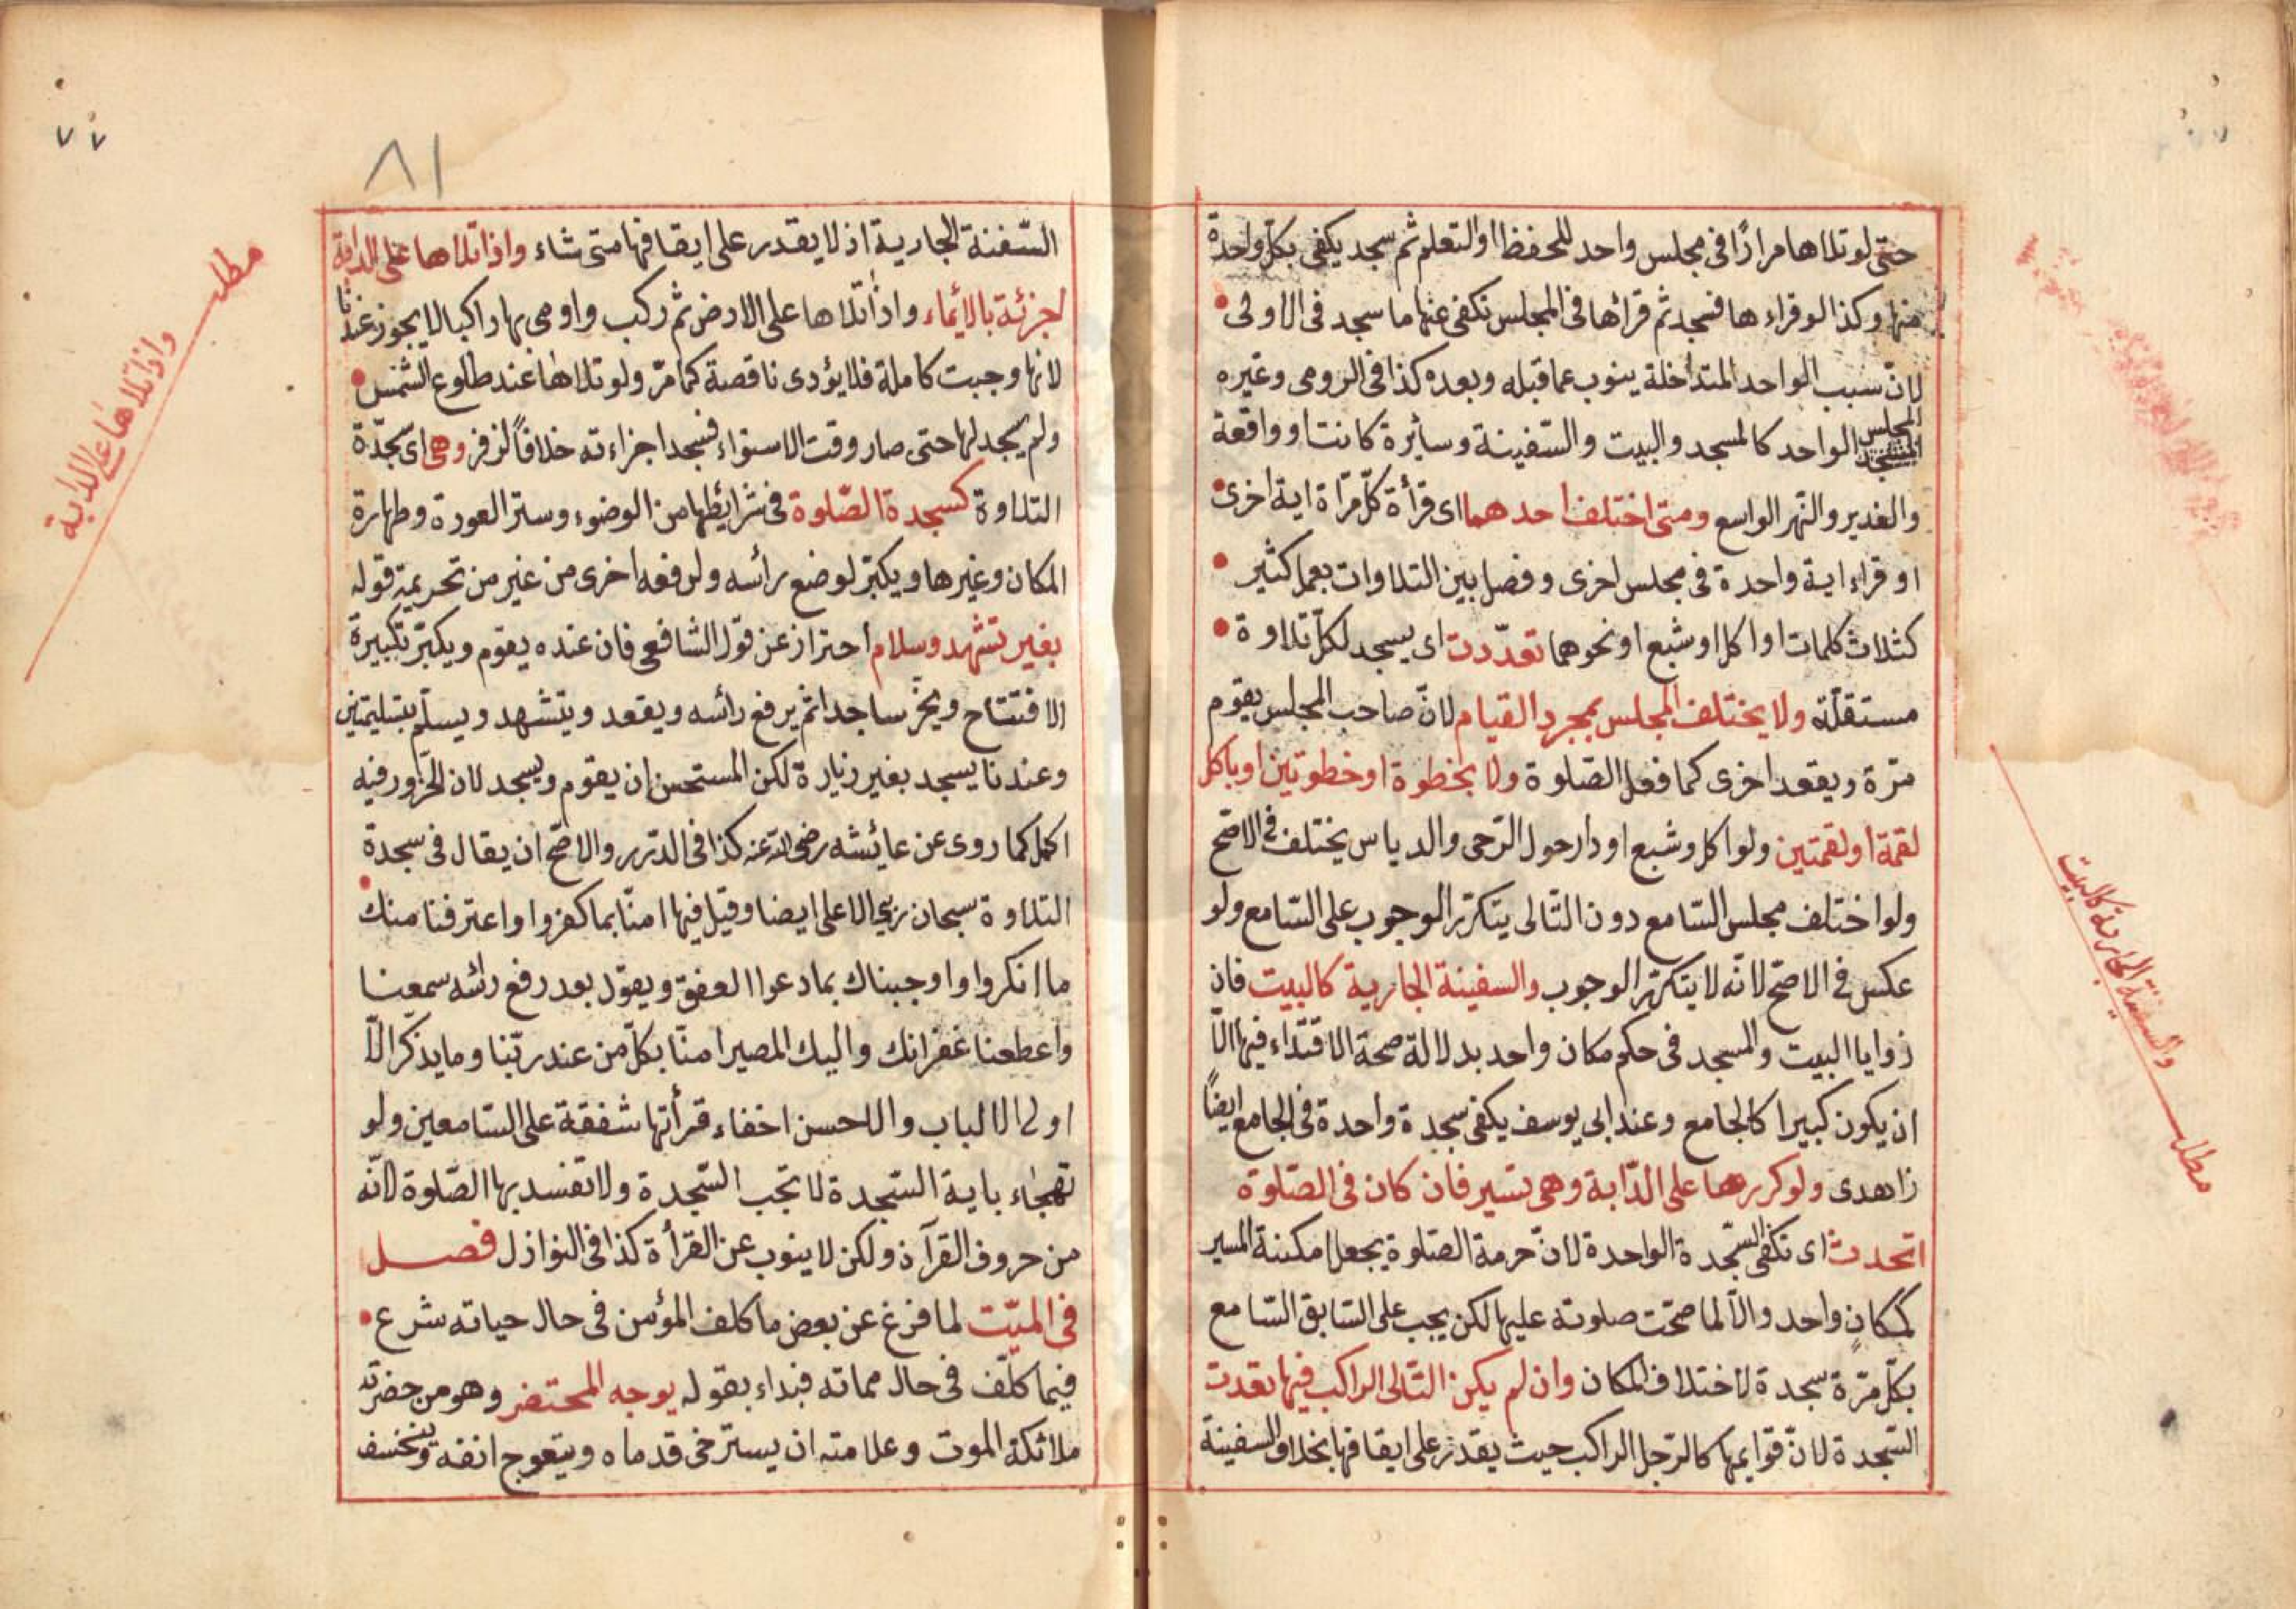 حتى لو تلاها مرارًا فى مجلس واحد للحفظ او التعلم ثم سجد يكفى بكل واحدة
منها وكذا لو قراءها فسجد ثم قرأها فى المجلس تكفى عنها ما سجد فى الاولى
لان سبب الواحد المتداخلة ينوب عما قبله وبعده كذا فى الرومى وغيره
المجلس الواحد كالمسجد والبيت والسفينة وسائرة كانت او واقعة
والغدير والنهر الواسع ومتى اختلف احدهما اى قرأة كل مرّة اية اخرى
او قراء اية واحدة فى مجلس اخرى وفصل بين التلاوات بعمل كثير
كثلاث كلمات او اكل او شبع او نحوهما تعدّدت اى يسجد لكل تلاوة
مستقلّة ولا يختلف المجلس بمجرد القيام لانّ صاحب المجلس يقوم
مرّة ويقعد اخرى كما فعل الصلوة ولا بخطوة او خطوتين او باكل
لقمة او لقمتين ولو اكل وشبع او دار حول الرّحى والدياس يختلف فى الاصح
ولو اختلف مجلس السّامع دون التّالى يتكرّر الوجوب على السّامع ولو
عكس فى الاصحّ لانّه لا يتكرّر الوجوب والسفينة الجارية كالبيت فان
زوايا البيت والمسجد فى حكم مكان واحد بدلالة صحة الاقتداء فيها الّا
ان يكون كبيرا كالجامع وعند ابى يوسف يكفى سجدة واحدة فى الجامع ايضًا
زاهدى ولو كررها على الدّابة وهى تسير فان كان فى الصّلوة
اتحدت اى تكفى السّجدة الواحدة لانّ حرمة الصّلوة يجعل امكنة المسير
كمكان واحد والّا لما صحّت صلوته عليها لكن يجب على السّابق السّامع
بكل مرّة سجدة لاختلاف المكان وان لم يكن التّالى الراكب فيها تعدت
السّجدة لانّ قوايمها كالرّجل الراكب حيث يقدر على ايقافها بخلاف السفينة
والسفينة الجارية كالبيت
مطلـ
٧٧
٨١
السّفنة الجارية اذ لا يقدر على ايقافها متى شاء واذا تلاها على الدابة
اجزئة بالايماء واذا تلاها على الارض ثم ركب واومى بها راكبا لا يجوز عندنا
لانها وجبت كاملة فلا يؤدى ناقصة كما مرّ ولو تلاها عند طلوع الشمس
ولم يسجد لها حتى صار وقت الاستواء فسجد اجزاءته خلافًا لزفر وهى اى سجدة
التلاوة كسجدة الصّلوة فى شرايطها من الوضوء وستر العورة وطهارة
المكان وغيرها ويكبّر لوضع رأسه ولرفعه اخرى من غير من تحريمة قوله
بغير تشهد وسلام احتراز عن قول الشافعى فان عنده يقوم ويكبّر تكبيرة
الافتتاح ويخرّ ساجدا ثم يرفع رأسه ويقعد ويتشهد ويسلّم بتسليمتين
وعندنا يسجد بغير زيارة لكن المستحسن ان يقوم ويسجد لان الخرور فيه
اكمل كما روى عن عائشه رضى الله عنه كذا فى الدّرر والاصّح ان يقال فى سجدة
التلاوة سبحان ربى الاعلى ايضا وقيل فيها امنّا بما كفروا واعترفنا منك
ما انكروا واوجبناك بما دعوا العفو ويقول بعد رفع رائسه سمعنا
واعطعنا غفرانك واليك المصير امنّا بكلّ من عند ربّنا وما يذكّر الّا
اولى الالباب والاحسن اخفاء قرأتها شفقة على السّامعين ولو
تهجاء باية السّجدة لا تجب السّجدة ولا تفسد بها الصّلوة لانّه
من حروف القرآن ولكن لا ينوب عن القرأة كذا فى النوازل فصل
فى الميّت لما فرغ عن بعض ما كلف المؤمن فى حال حياته شرع
فيما كلّف فى حال مماته فبداء بقوله يوجه المحتضر وهو من حضرته
ملائكة الموت وعلامته ان يسترخى قدماه ويتعوج انفه وينخسف
مطلـ
واذا تلاها على الدابة